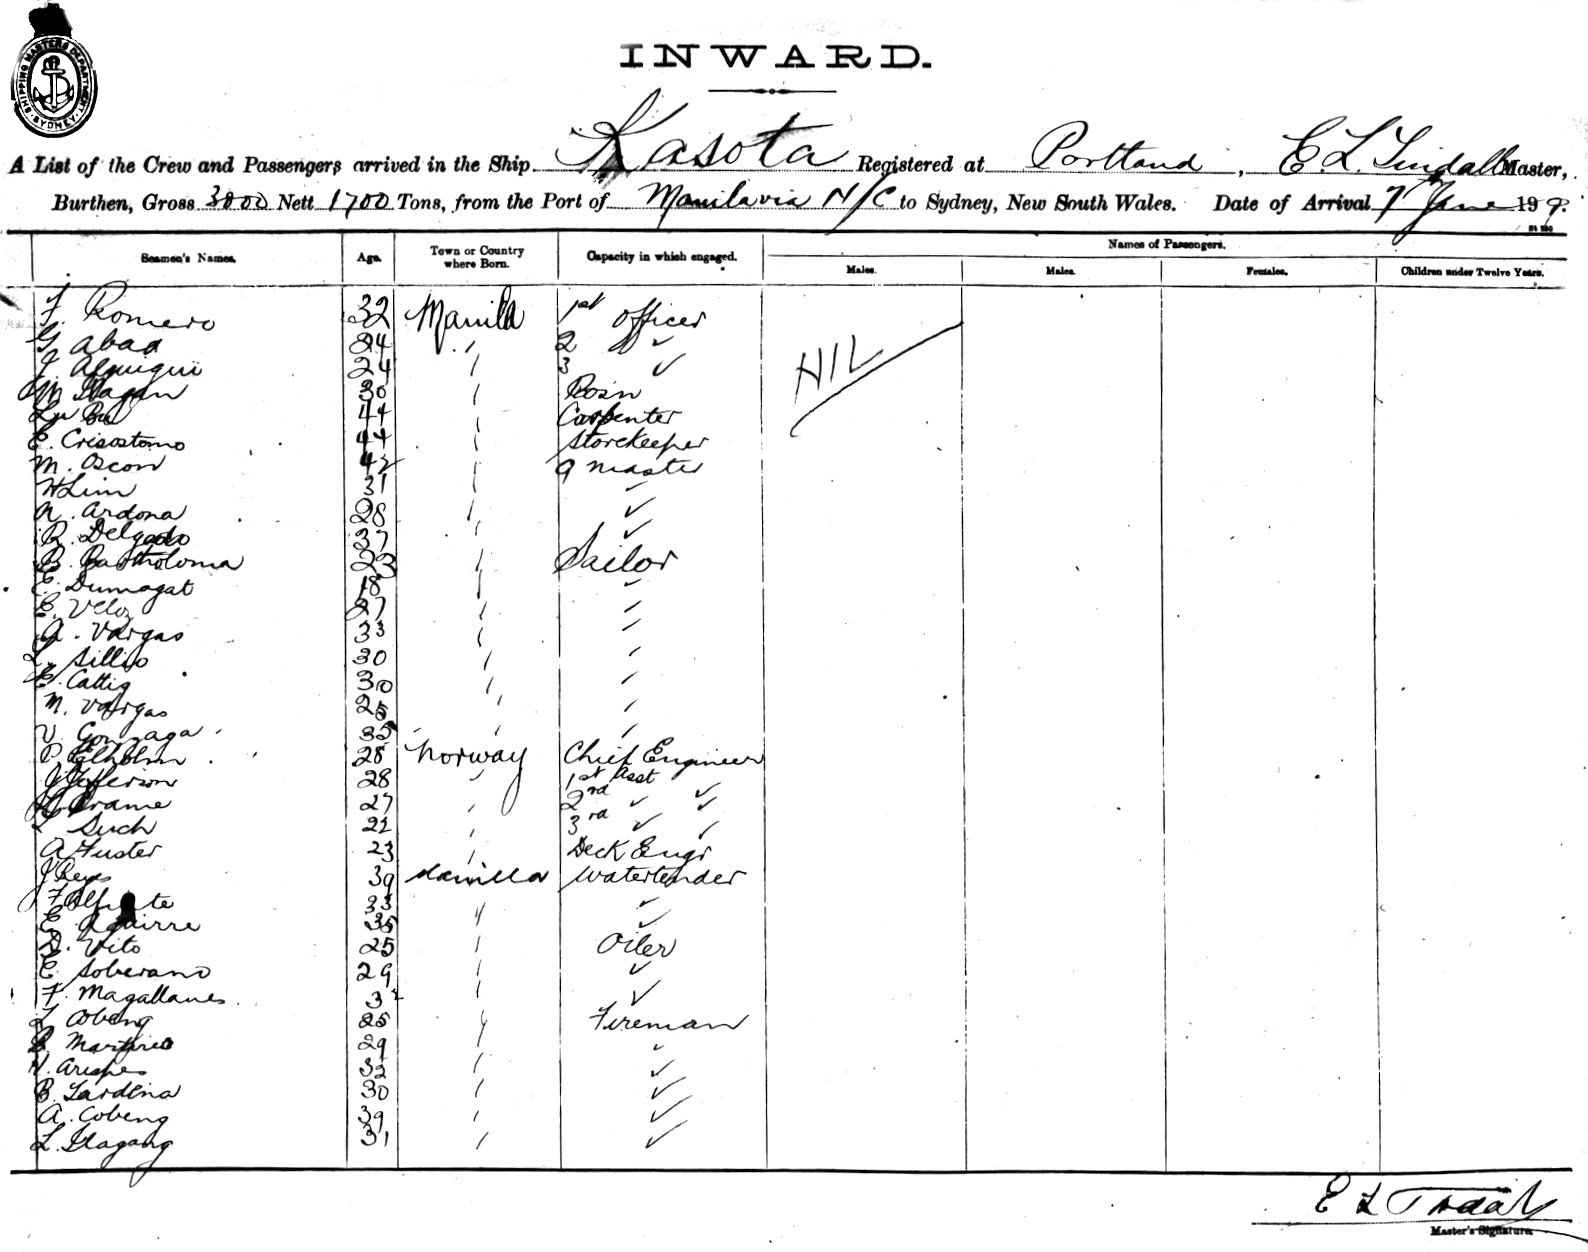 SHIPPING MASTERS DEPARTMENT SYDNEY
INWARD.
A List of the Crew and Passengers arrived in the Ship Kasota Registered at Portland, E. L. Tindall Master,
Burthen, Gross 3000 Nett 1700 Tons, from the Port of Manila via N/C to Sydney, New South Wales. Date of Arrival 7 June 19
Seamen's Names. Age. Town or Country where Born. Capacity in which engaged. Names of Passengers.
Males. Males. Females. Children under Twelve Years.
F. Romero 32 Manila 1st Officer
G. Abad 24 2
24 3
M. Ilagan 30 Bosn
44 Carpenter
E. Crisostomo 44 Storekeeper
M. Oscon 42 Q master
H Lim 31
N. Ardona 28
R. Delgado 37
B. Bartholoma 23 Sailor
E. Dumagat 18
E. Veloz 27
A. Vargas 33
L. Sillio 30
E. Cattig 30
M. Vargas 25
V. Gonzaga 35
Elholm 28 Norway Chief Engineer
J Jefferson 28 1st Asst
Crame 27 2nd
Such 22 3rd
A Fuster 23 Deck Engr
J Reyes 39 Manilla Watertender
33
E. Aguirre 35
D. Vito 25 Oiler
E. Soberano 29
F. Magallanes 32
Cobeng 25 Fireman
29
32
B. Gardena 30
A. Cobeng 39
L. Ilagang 31
NIL
E L Tindall
Master's Signature.